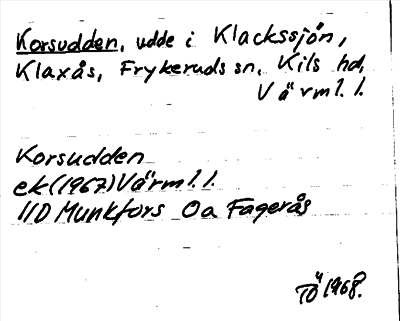 Korsudden, udde i Klackssjön,
Klaxås, Frykeruds sn, Kils hd,
Värml. l.
Korsudden
ek (1967) Värml. l.
11D Munkfors 0a Fagerås
TÖ 1968.